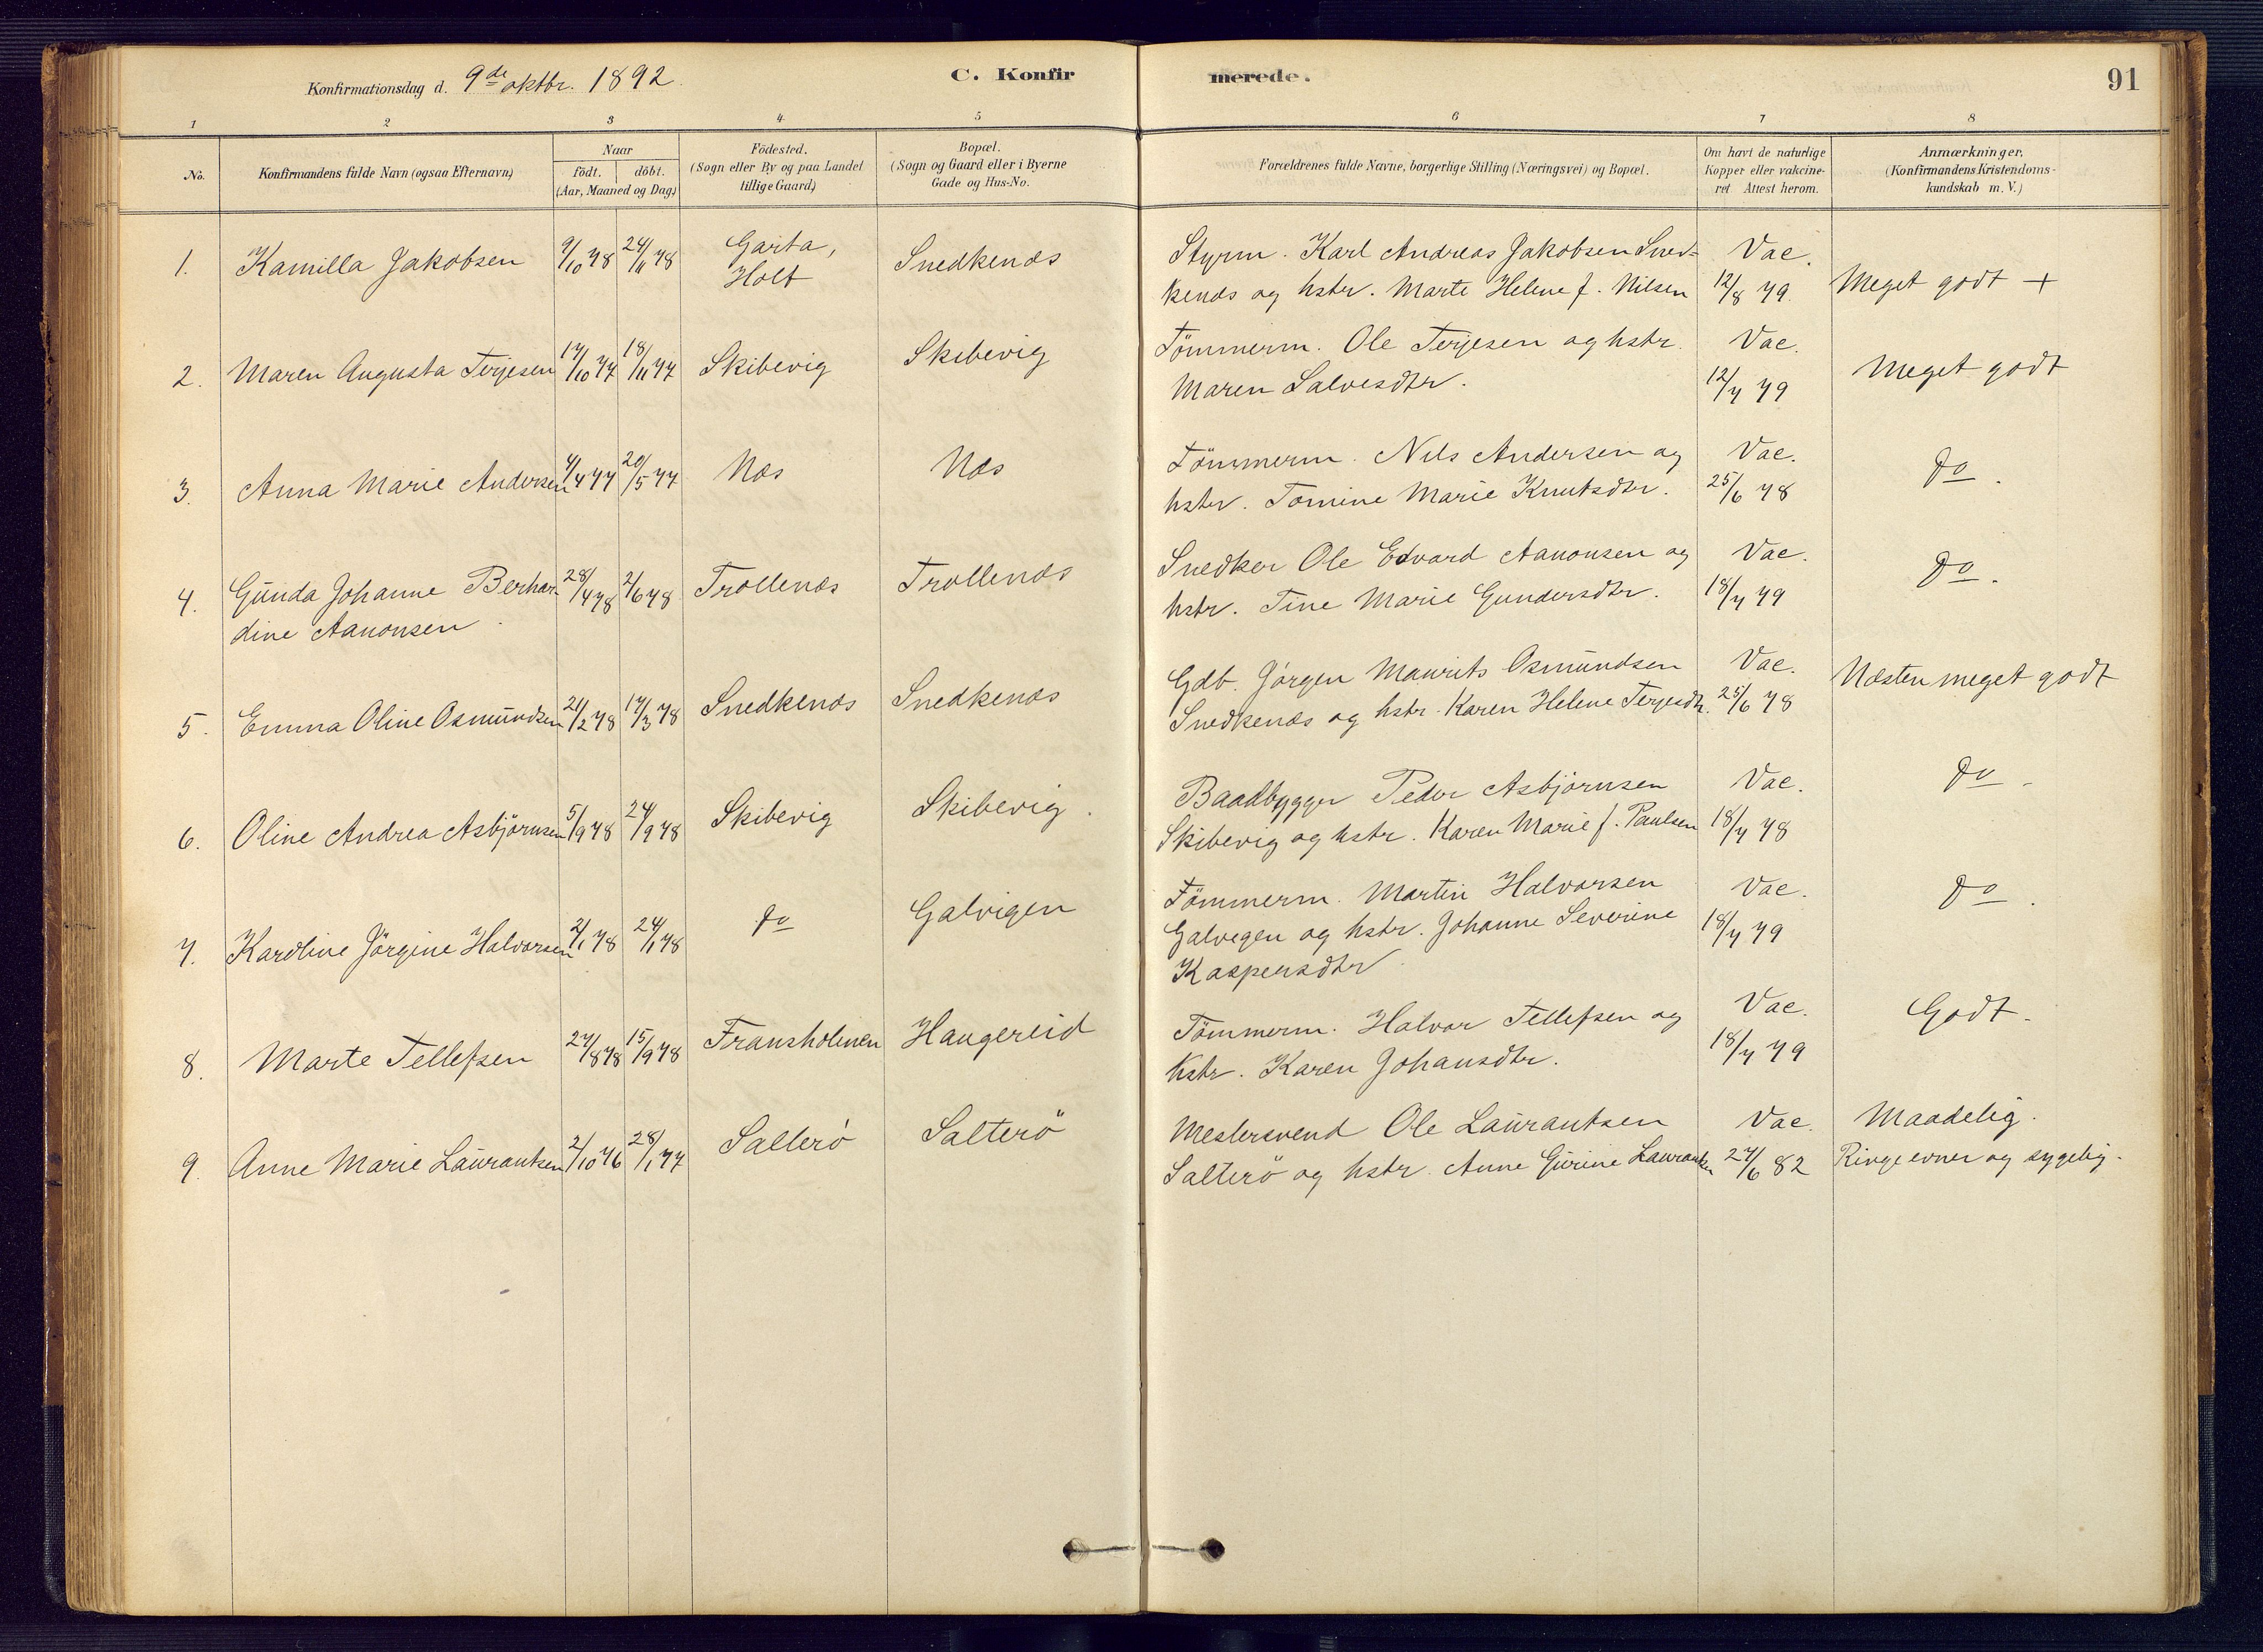 Konfirmationsdag d. 9de oktbr. 1892.
C. Konfirmerede.
91
1 2 3 4 5 6 7 8
No.
Konfirmandens fulde Navn (ogsaa Efternavn)
Naar
födt. döbt.
(Aar, Maaned og Dag)
Födested.
(Sogn eller By og paa Landet
tillige Gaard)
Bopæl.
(Sogn og Gaard eller i Byerne
Gade og Hus-No.
Forældrenes fulde Navne, borgerlige Stilling (Næringsvei) og Bopæl.
Om havt de naturlige
Kopper eller vakcine-
ret Attest herom.
Anmærkninger.
(Konfirmandens Kristendoms-
kundskab m. V.)
1. Kamilla Jakobsen 9/10 78 24/11 78 Garta, Holt Snedkenæs
Styrm. Karl Andreas Jakobsen Sned-
kenæs og hstr. Marte Helene f. Nilsen
Vac. 12/8 79. Meget godt +
2. Maren Augusta Terjesen 17/10 77 18/11 77 Skibevig Skibevig
Tömmerm. Ole Terjesen og hstr.
Maren Salvesdtr.
Vac. 12/7 79 Meget godt
3. Anna Marie Andersen 4/4 77 20/5 77 Næs Næs
Tömmerm. Nils Andersen og
hstr. Tomine Marie Knutsdtr.
Vac. 25/6 78 do.
4. Gunda Johanne Berhar-
dine Aanonsen 28/4 78 2/6 78 Trollenæs Trollenæs
Snedker Ole Edvard Aanonsen og
hstr. Tine Marie Gundersdtr.
Vac. 18/7 79 do.
5. Emma Oline Osmundsen 21/2 78 17/3 78 Snedkenæs Snedkenæs
Gdb. Jörgen Maurits Osmundsen
Snedkenæs og hstr. Karen Helene Terjesdtr.
Vac. 25/6 78 Næsten meget godt
6. Oline Andrea Asbjörnsen 5/9 78 24/9 78 Skibevig Skibevig.
Baadbygger Peder Asbjörnsen
Skibevig og hstr. Karen Marie f. Paulsen
Vac. 18/7 78 do.
7. Karoline Jörgine Halvorsen 2/1 78 24/1 78 do Galvigen
Tömmerm. Martin Halvorsen
Galvegen og hstr. Johanne Severine
Kaspersdtr
Vac. 18/7 79 do.
8. Marte Tellefsen 27/8 78 15/9 78 Fransholmen Haugereid
Tömmerm. Halvor Tellefsen og
hstr. Karen Johansdtr.
Vac. 18/7 79 Godt.
9. Anne Marie Laurantsen 2/10 76 28/1 77 Salterö Salterö
Mestersvend Ole Laurantsen
Salterö og hstr. Anne Gurine Laurantsen
Vac. 27/6 82 Maadelig.
Ringe evner og sygelig.